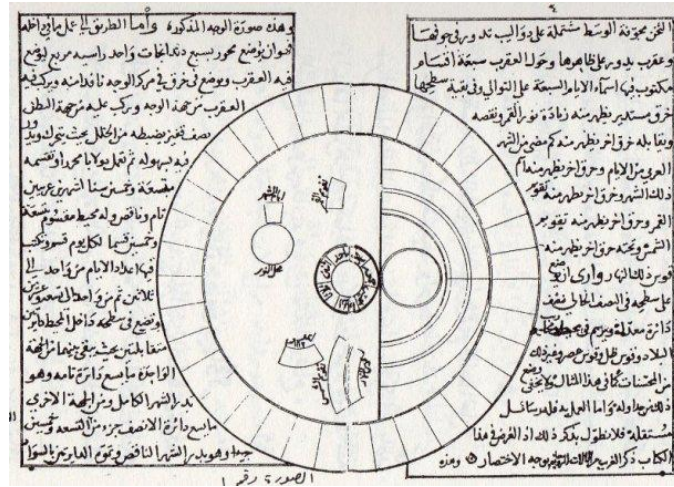 ٤
الثخن مجوفة الوسط مشتملة على دواليب تدور في جوفها
وعقرب يدور على ظاهرها وحول العقرب سبعة اقسام
مكتوب فيها اسماء الايام السبعة على التوالي وفي بقية سطحها
خرق مستدير يظهر منه زيادة نور القمر ونقصه
ويقابله خرق اخر يظهر منه كم مضى من الشهر
العربي من الايام وخرق اخر يظهر منه
ذلك الشهر وخرق اخر يظهر منه تقويم
القمر وخرق اخر يظهر منه تقويم
الشمس وتحته خرق اخر يظهر منه
قوس ذلك النهار
على سطحه في النصف الخالي نصف
دائرة معدلة ويرسم في
البلاد وقوس ظل وقوس عصر وغير ذلك
من المحسنات كما في هذا المثال
ذلك من جداوله واما العمل به فله رسائل
مستقلة فلا نطول بذكر ذلك اذ الغرض في هذا
الكتاب ذكر الغريبة بوجه الاختصار وهذه
وهذه صورة الوجه المذكورة واما الطريق الى عمل ما في داخله
فهو ان يوضع محور بسبع دندانجات واحد راسيه مربع ليوضع
فيه العقرب ويوضع في خرق في مركز الوجه نافذا منه ويركب فيه
العقرب من جهة الوجه ويركب عليه من جهة البطن
نصف فخيز يضبطه من الخلل بحيث يتحرك ويدور
فيه بسهوله ثم تعمل دولابا مجددا وتقسمه
بتسعة وخمسين سنا لشهرين عربيين
تام وناقص وله محيط مقسوم بتسعة
وخمسين قسما لكل يوم قسم وتكتب
فيها اعداد الايام من واحد الى
ثلاثين ثم من واحد الى تسعة وعشرين
وتضع في سطحه داخل المحيط دائرتين
متقابلتين بحيث يبقى بينهما من الجهة
الواحدة ما يسع دائرة تامة وهو
قدر الشهر الكامل ومن الجهة الاخرى
ما يسع دائرة الا نصف جزء من التسعة وخمسين
جزءا وهو بقدر الشهر الناقص
ايام الشهر
تقويم القمر
محل النور
الصورة رقم ١